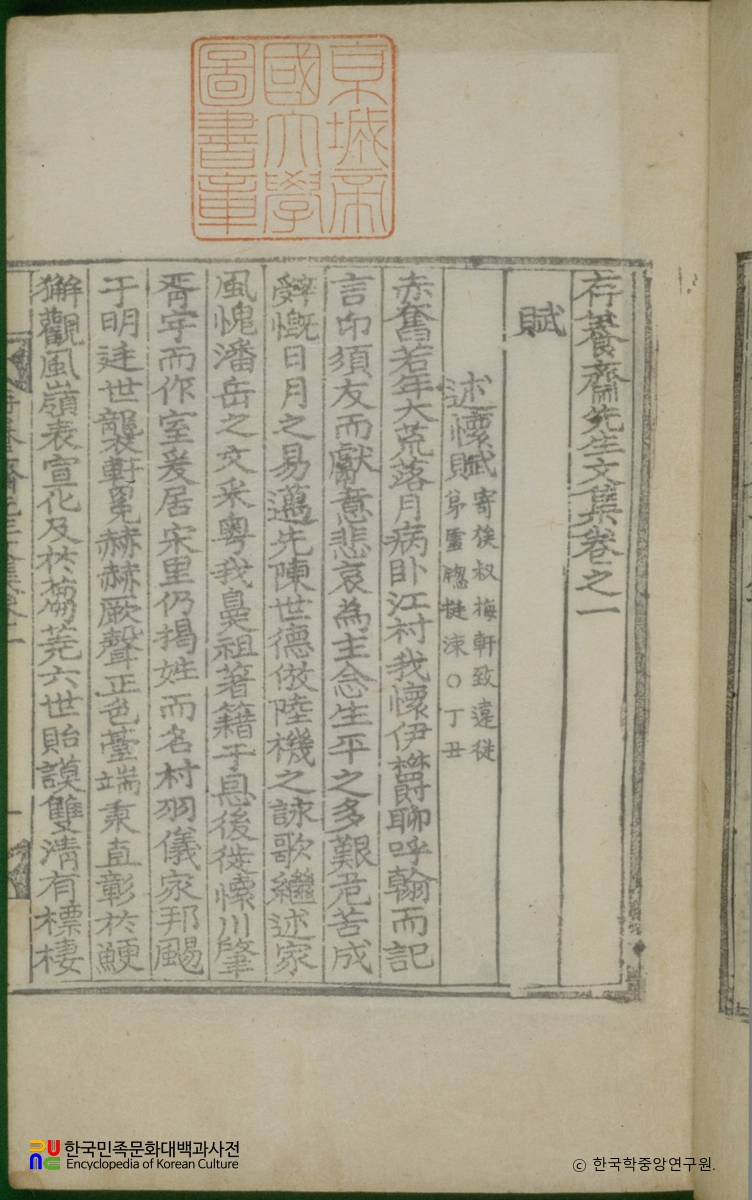 京城帝
國大學
圖書章
存養齋先生文集卷之一
賦
述懷賦
寄族叔梅軒致遠從
弟
涑○丁丑
赤奮若年大荒落月病臥江村我懷伊欝聊呼翰而記
言卬須友而獻意悲哀為主念生平之多艱危苦成
辭慨日月之易邁先陳世德倣陸機之詠歌繼述家
風愧潘岳之文采粤我鼻祖著籍于息後徙懷川肇
胥宇而作室爰居宋里仍揭姓而名村羽儀家邦颺
于明廷世襲軒冕赫赫厥聲正色臺端秉直彰於鯁
獬觀風嶺表宣化及於蒭蕘六世貽謨雙淸有標棲
한국민족문화대백과사전
Encyclopedia of Korean Culture
ⓒ 한국학중앙연구원.